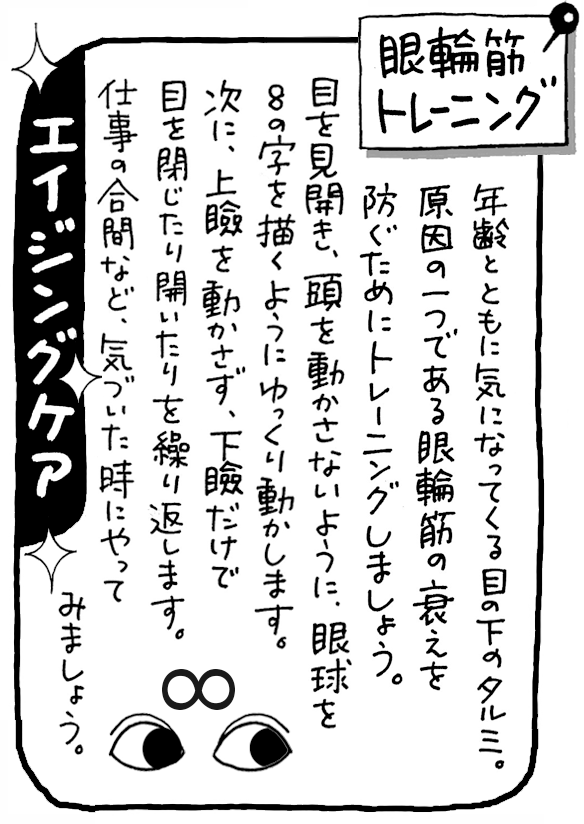 眼輪筋
トレーニング
年齢とともに気になってくる目の下のタルミ。
原因の一つである眼輪筋の衰えを
防ぐためにトレーニングしましょう。
目を見開き、頭を動かさないように、眼球を
8の字を描くようにゆっくり動かします。
次に、上瞼を動かさず、下瞼だけで
目を閉じたり開いたりを繰り返します。
仕事の合間など、気づいた時にやって
みましょう。
エイジングケア